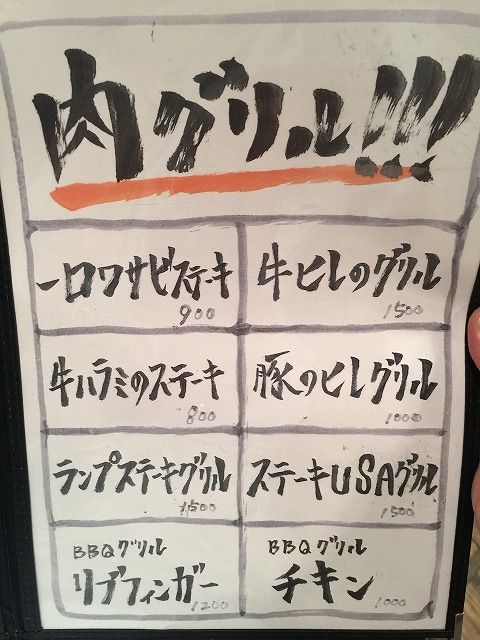 肉グリル!!!
一口ワサビステーキ
900
牛ヒレのグリル
1500
牛ハラミのステーキ
800
豚のヒレグリル
1000
ランプステーキグリル
1500
ステーキUSAグリル
1500
BBQグリル
リブフィンガー
1200
BBQグリル
チキン
1000